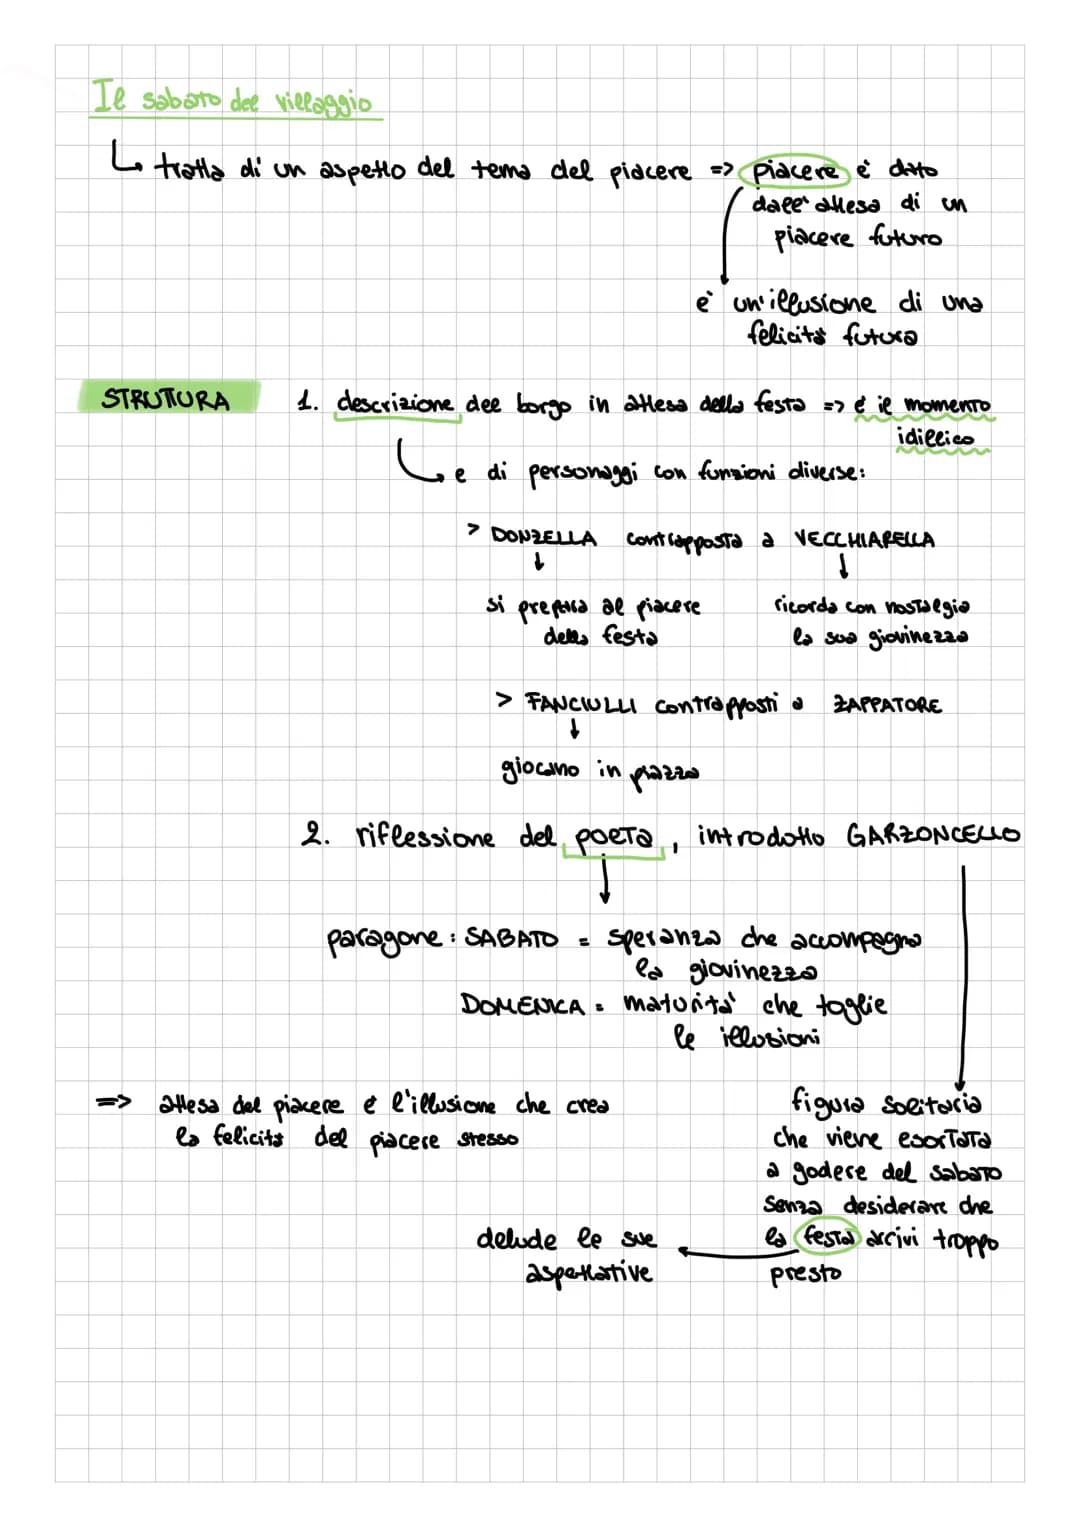 Il sabato del villaggio
↳ tratta di un aspetto del tema del piacere => piacere è dato
dall'attesa di un
piacere futuro
è un'illusione di una
felicità futura
STRUTTURA 1. descrizione del borgo in attesa della festa => è il momento
idillico
↳ e di personaggi con funzioni diverse:
> DONZELLA contrapposta a VECCHIARELLA
↓ ↓
si prepara al piacere ricorda con nostalgia
della festa la sua giovinezza
> FANCIULLI contrapposti a ZAPPATORE
↓
giocano in piazza
2. riflessione del poeta, introdotto GARZONCELLO
paragone: SABATO = speranza che accompagna
la giovinezza
DOMENICA = maturità che toglie
le illusioni
=> attesa del piacere è l'illusione che crea
la felicità del piacere stesso
figura solitaria
che viene esortata
a godere del sabato
senza desiderare che
la festa arrivi troppo
presto
delude le sue
aspettative